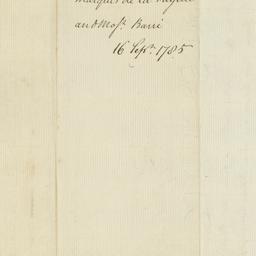 Marquis de la Fayette
and Mosr. Barré
16 Septr. 1785